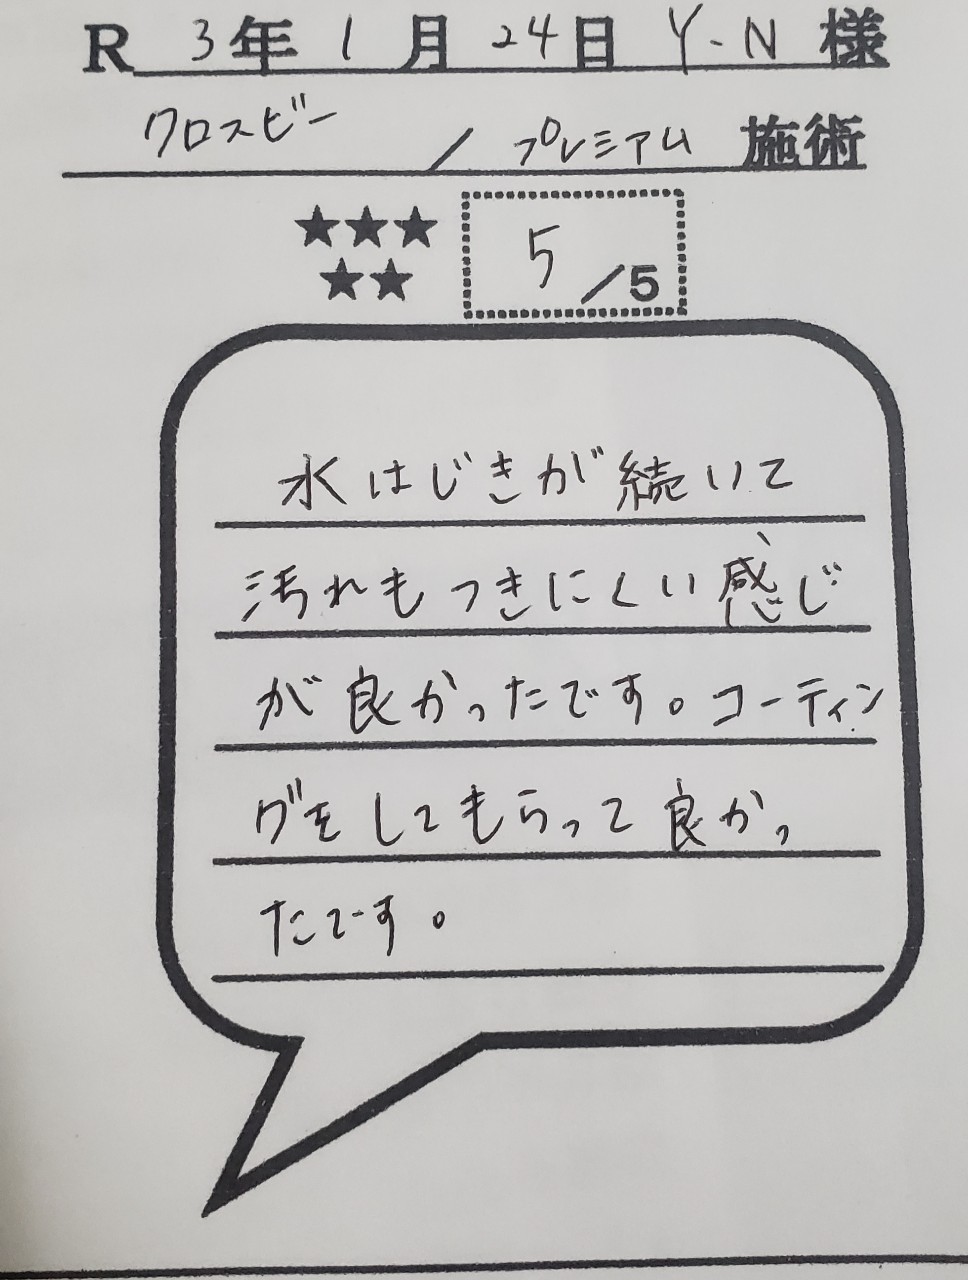 R 3年 1月 24日 Y.N 様
クロスビー / プレミアム 施術
★★★
★★
5/5
水はじきが続いて
汚れもつきにくい感じ
が良かったです。コーティン
グをしてもらって良かっ
たです。